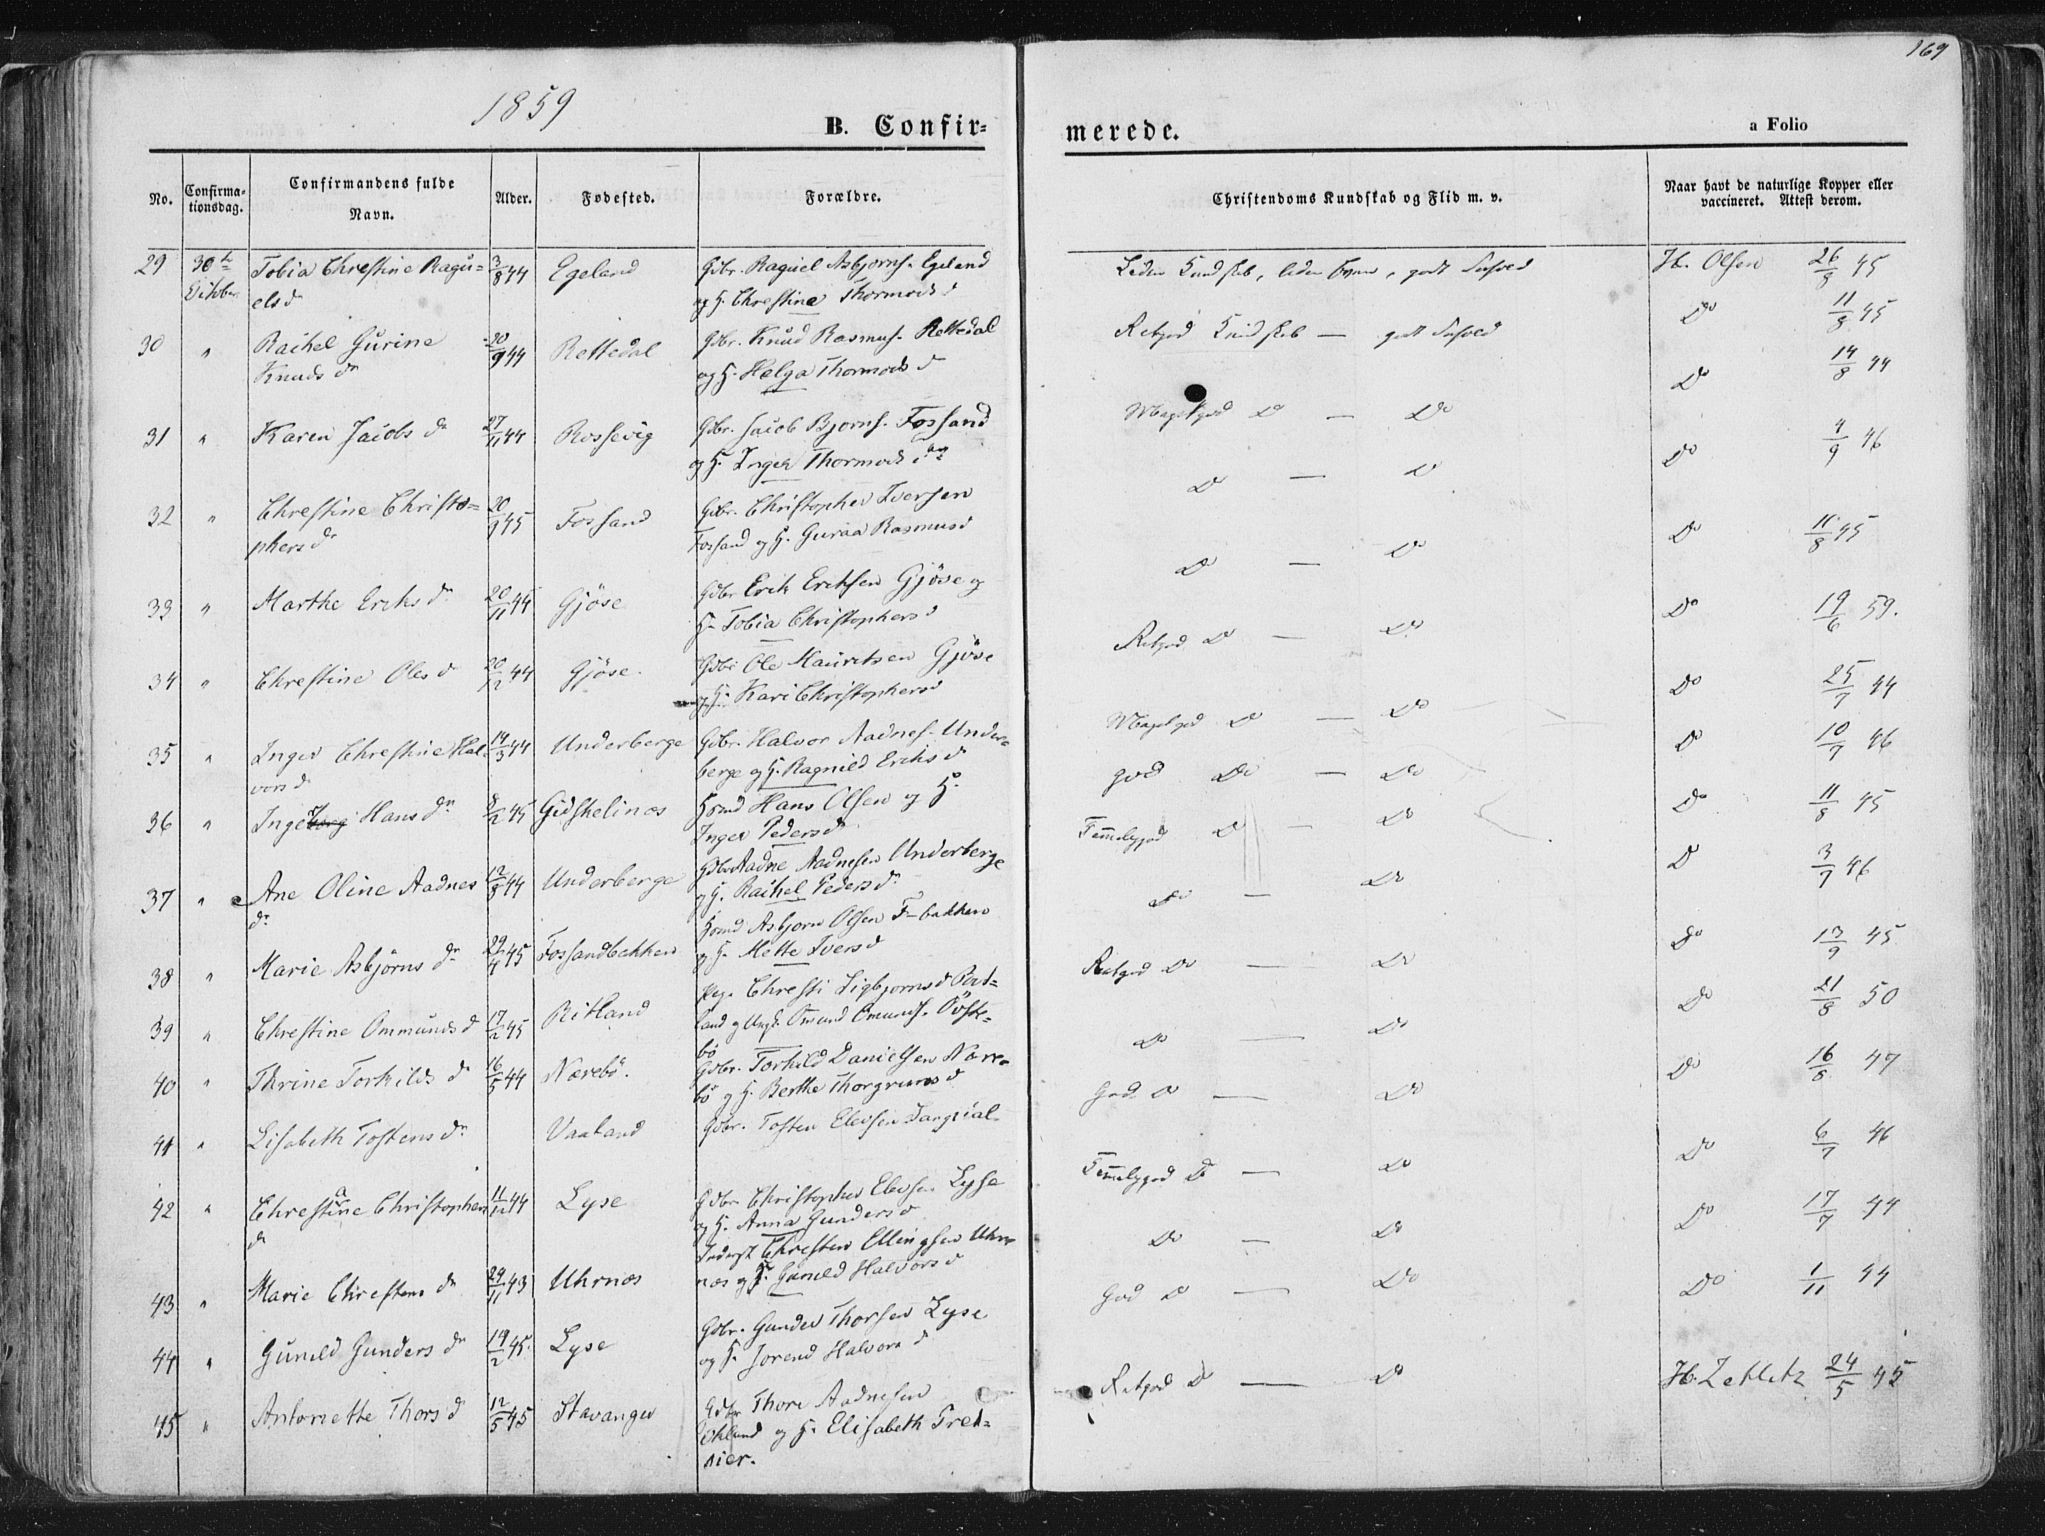 169
1859
B. Confir=
merede.
a Folio
No.
Confirma-
tionsdag.
Confirmandens fulde
Navn.
Alder.
Fødested.
Forældre.
Christendoms Kundskab og Flid m. v.
Naar havt de naturlige Kopper eller
vaccineret. Attest derom.
29 30te Tobia Chrestine Ragu= 3/8 44 Egeland Gdbr. Raguel Asbjørns. Egeland
October els d. og H. Chrestine Thormods d
Liden Kundskab, liden , godt Forhold Hr. Olsen 26/8 45
30 " Rachel Gurine 20/9 44 Rettedal Gdbr. Knud Rasmus. Rettedal
Knuds dr og H. Helga Thormods d
Retgod Kundskab — godt Forhold Do 11/8 45
31 " Karen Jacobs dr 27/11 44 Rossevig Gdbr. Jacob Bjørns. Fossand
og H. Inger Thormods d
Megetgod Do — Do Do 14/8 44
32 " Chrestine Christo= 20/9 45 Fossand Gdbr. Christopher Iversen
phers dr Fossand og H. Guraa Rasmusd
Do — Do Do 4/9 46
33 " Marthe Eriks dr 20/11 44 Gjöse Gdbr Erik Eriksen Gjöse og
H. Tobia Christophers d
Do — Do Do 11/8 45
34 " Chrestine Oles d 20/12 44 Gjöse. Gdbr Ole Mauritsen Gjöse
og H. Kari Christophersd
Retgod Do — Do Do 19/6 59.
35 " Inger Chrestine Hal- 14/3 44 Underberge Gdbr. Halvor Aadnes. Under=
vors d berge og H. Ragnild Eriks d
Megetgod Do — Do Do 25/7 44
36 " Inger Hans dr 8/2 45 Gidskelinæs Huusmd Hans Olsen og H.
Inger Peders d
God Do — Do Do 10/7 46
37 " Ane Oline Aadnes 12/8 44 Underberge Gdbr Aadne Aadnesen Underberge
dr. og H. Rachel Peders dr
Temmeliggod Do — Do Do 11/8 45
38 " Marie Asbjørns dr 29/4 45 Fossandbakken Huusmd Asbjørn Olsen F-bakken
og H. Mette Ivers d
Do — Do Do 3/7 46
39 " Chrestine Ommunds d 17/2 45 Ritland Pige Chresti Sigbjørnsd
land og Ungk. Omund Omunds.
bö
Retgod Do — Do Do 13/9 45
40 " Thrine Torkilds d 16/5 44 Nærebö. Gdbr. Torkild Danielsen Nære=
bö og H. Berthe Thorgrims d
Do — Do Do 21/8 50
41 " Lisabeth Tostens dr Vaaland Gdbr. Tosten Elevsen
God Do — Do Do 16/8 47
42 " Chrestine Christophers 11/12 44 Lyse Gdbr Christopher Elevsen Lyse
dr og H. Anna Gunders d
Temmeliggod Do — Do Do 6/7 46
43 " Marie Chrestens dr 24/11 43 Uhrnæs Inderst Chresten Ellingsen Uhre-
næs og H. Gunild Halvors d
Do — Do Do 17/7 44
44 " Gunild Gunders dr 19/2 45. Lyse Gdbr. Gunder Thorsen Lyse
og H. Jorend Halvors d
God Do — Do Do 1/11 44
45 " Antonette Thors d 12/5 45 Stavanger Gdbr Thore Aadnesen
Øklund og H. Elisabeth Tret=
nier.
Retgod Do — Do H. Zetlitz 24/5 45